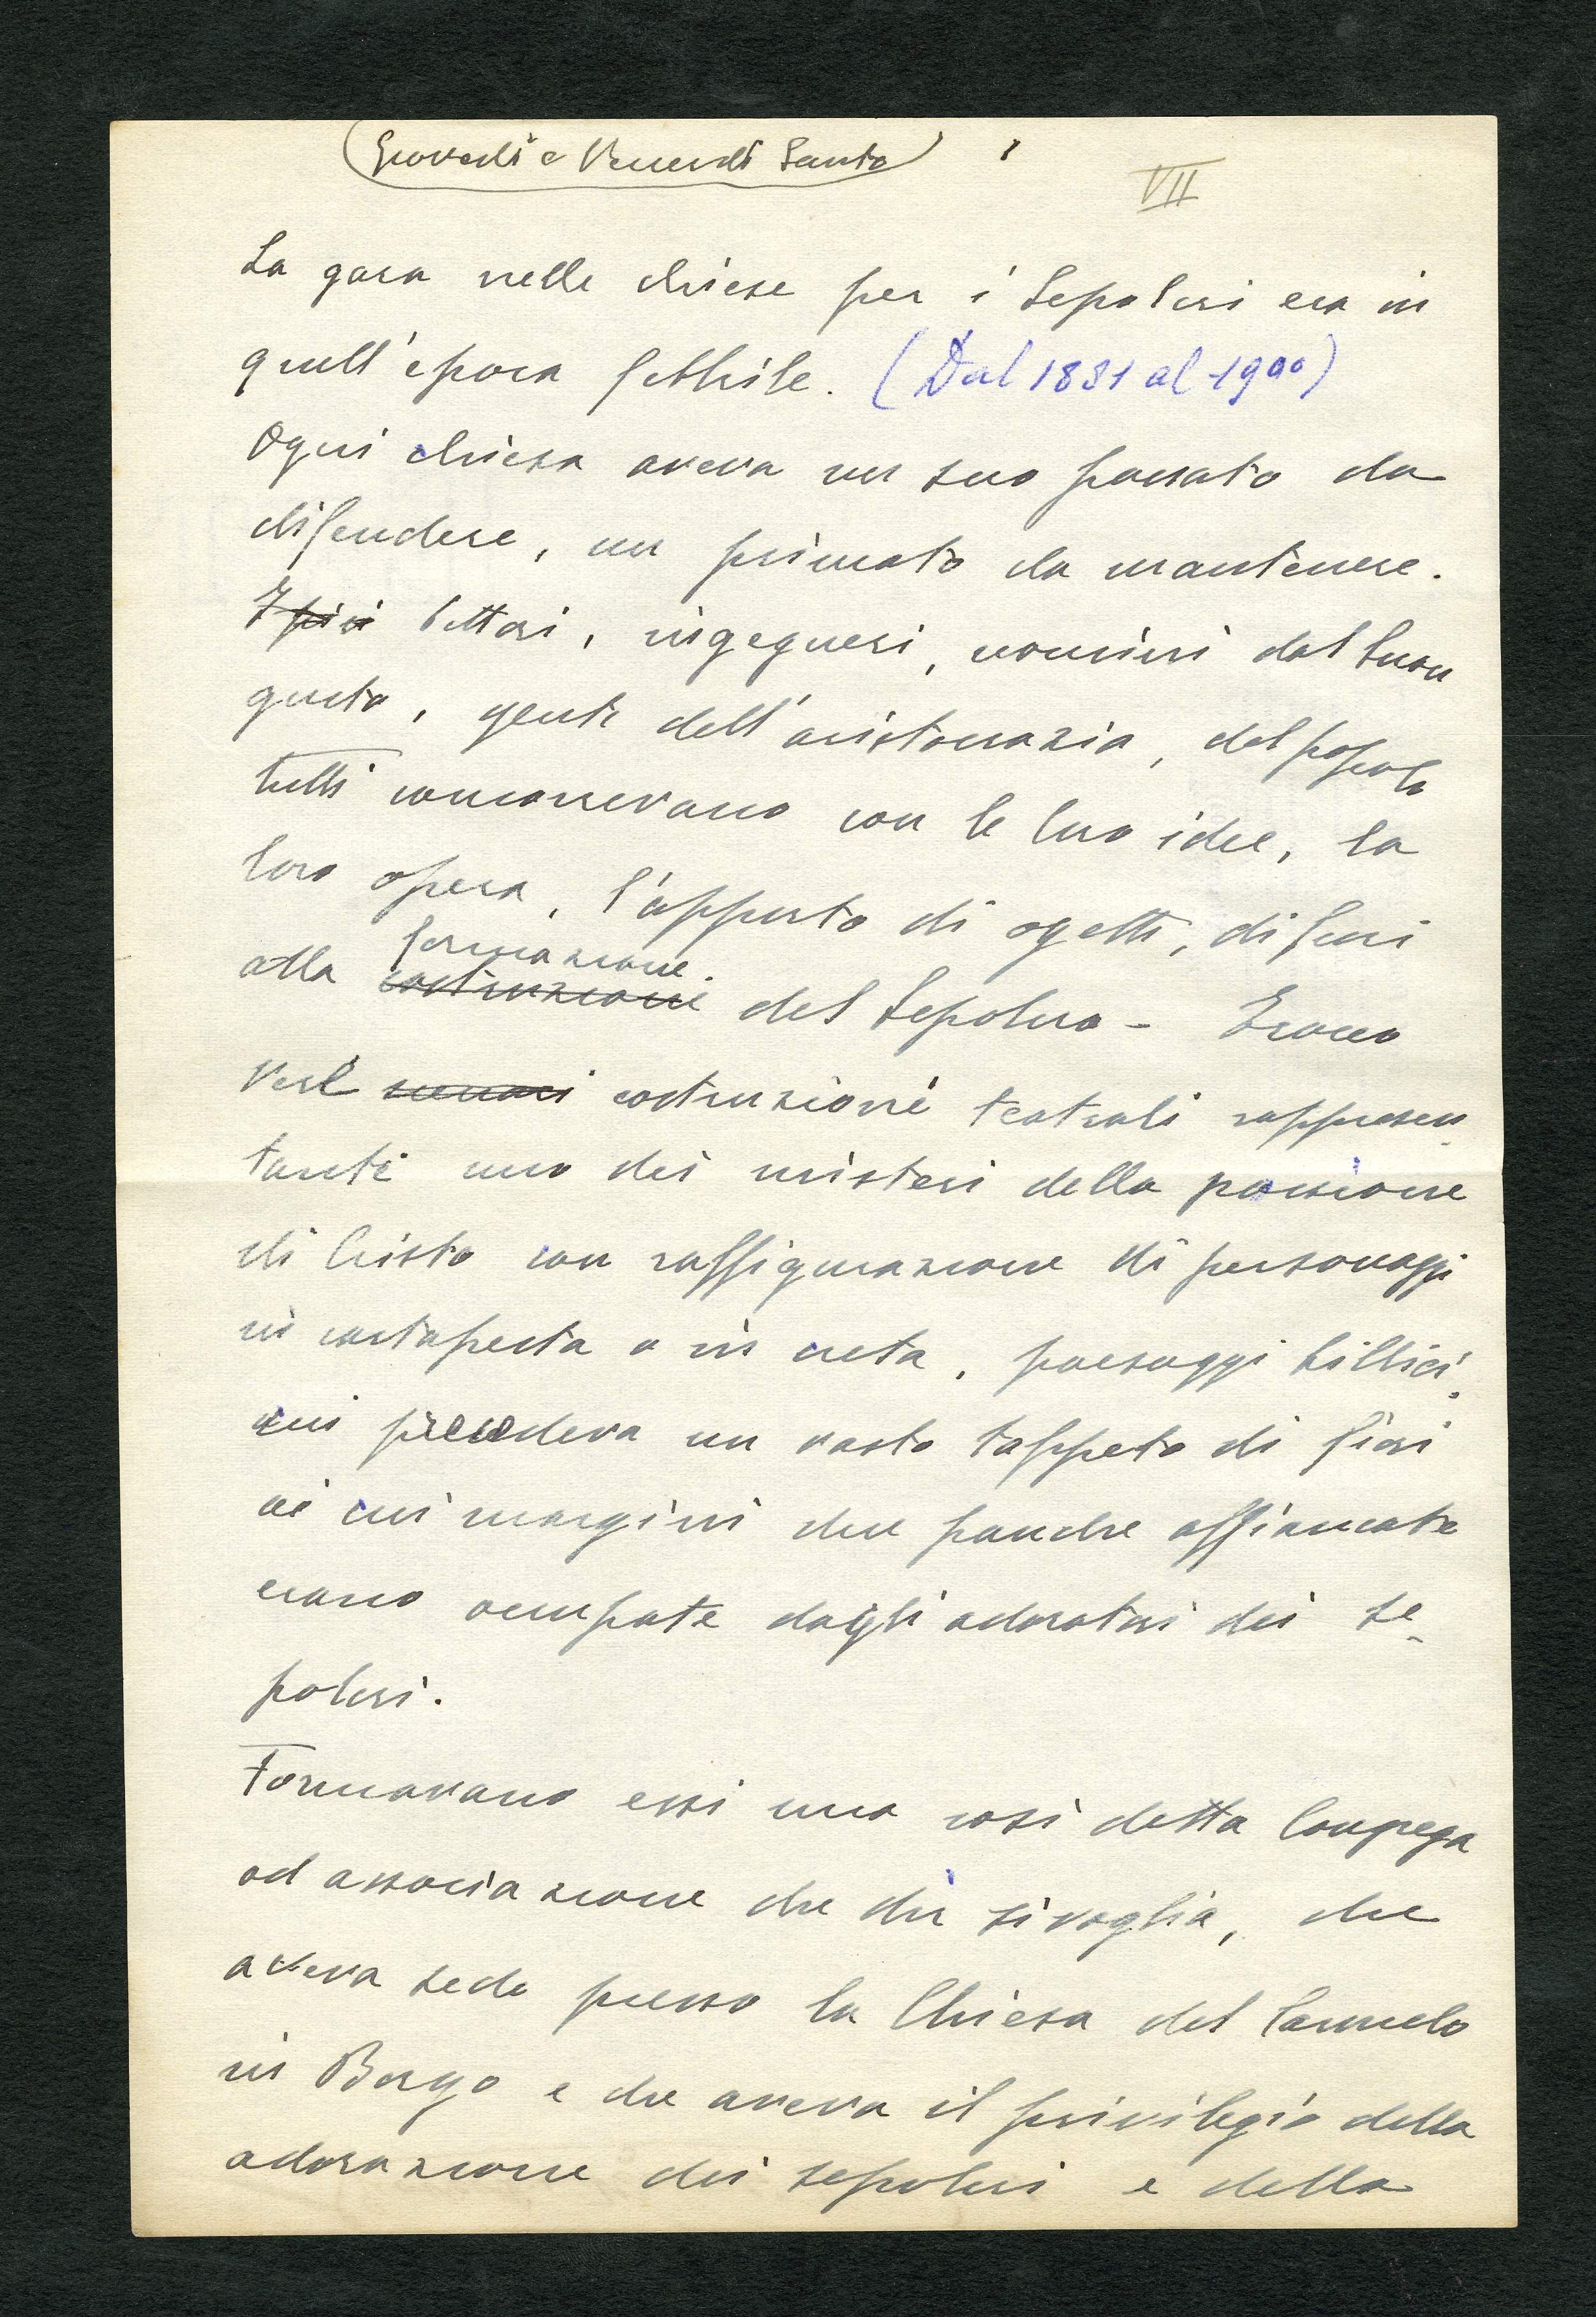 Giovedì e Venerdì Santo 1
VII
La gara nelle chiese per i Sepolcri era in
quell'epoca febbrile. (Dal 1881 al 1900)
Ogni chiesa aveva un suo passato da
difendere, un primato da mantenere.
I più Pittori, ingegneri, uomini del buon
gusto, gente dell'aristocrazia, del popolo
tutti concorrevano con le loro idee, la
loro opera, l'apporto di ogetti, di fiori
formazione
alla costruzione del Sepolcro - Erano
vere scenari costruzioni teatrali rappresen
tanti uno dei misteri della passione
di Cristo con raffigurazione di personaggi
in cartapesta o in creta, paesaggi biblici,
cui precedeva un vasto tappeto di fiori
ai cui margini due panche affiancate
erano occupate dagli adoratori dei se-
polcri.
Formavano essi una così detta Congrega
od associazione che dir si voglia, che
aveva sede presso la Chiesa del Carmelo
in Borgo e che aveva il privilegio della
adorazione dei sepolcri e della